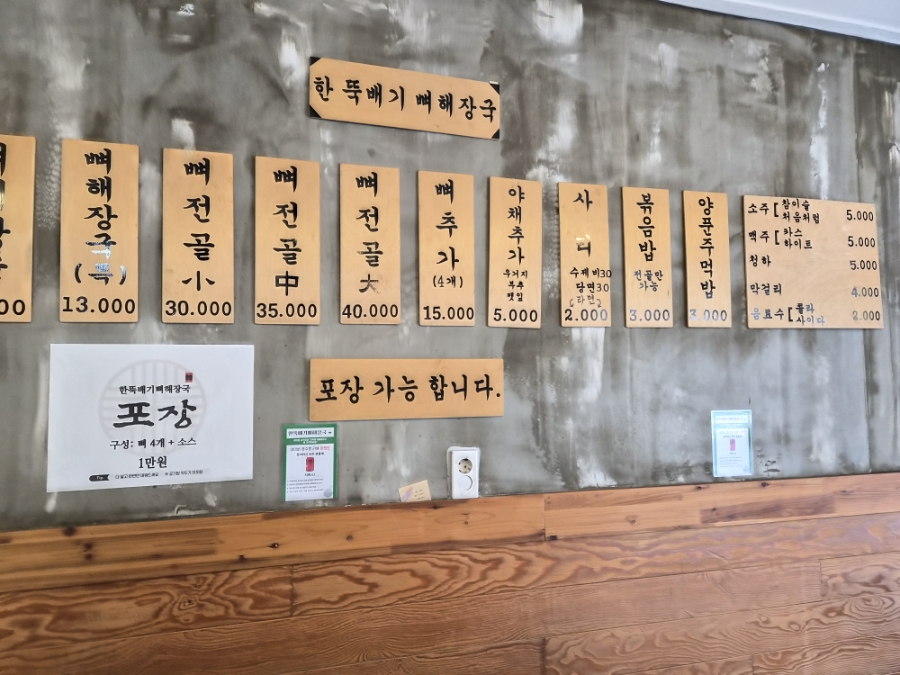 한 뚝배기 뼈해장국
뼈해장국
(특)
13.000
뼈전골 小
30.000
뼈전골 中
35.000
뼈전골 大
40.000
뼈추가
(4개)
15.000
야채추가
우거지
부추
깻잎
5.000
사리
수제비30
당면30
2.000
볶음밥
전골만
가능
3.000
양푼주먹밥
3.000
소주 [ 참이슬
처음처럼 5.000
맥주 [ 카스
하이트 5.000
청하 5.000
막걸리 4.000
음료수 [ 콜라
사이다 2.000
포장 가능 합니다.
한뚝배기뼈해장국
포장
구성: 뼈 4개 + 소스
1만원
한뚝배기뼈해장국